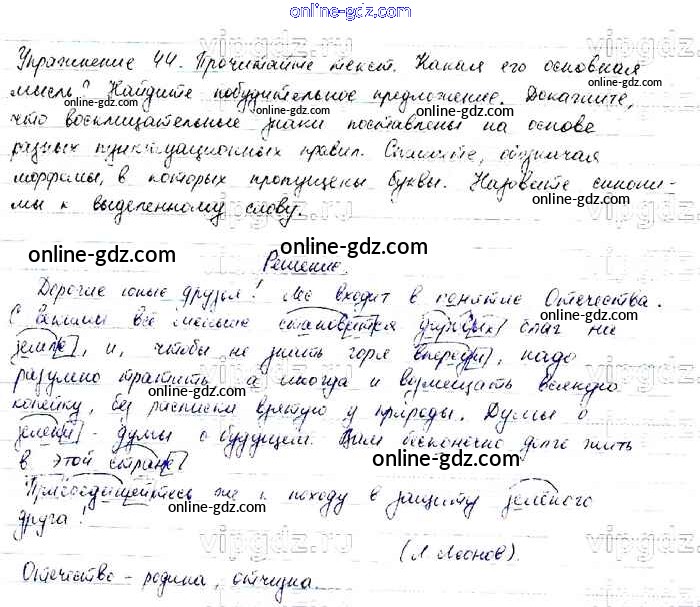 online-gdz.com
Упражнение 44. Прочитайте текст. Какая его основная
мысль? Найдите побудительное предложение. Докажите,
что восклицательные знаки поставлены на основе
разных пунктуационных правил. Спишите, обозначая
морфемы, в которых пропущены буквы. Назовите синони-
мы к выделенному слову.
online-gdz.com
Решение.
Дорогие юные друзья! Лес входит в понятие Отечества.
С все меньше становится даровых благ на
земле, и, чтобы не знать горя впереди, надо
разумно тратить, а иногда и возмещать всякую
копейку, без расписки взятую у природы. Думы о
зелени - думы о будущем. Вам бесконечно долго жить
в этой стране
Присоединяйтесь же к походу в защиту зелёного
друга!
(Л Леонов).
Отечество - родина, отчизна.